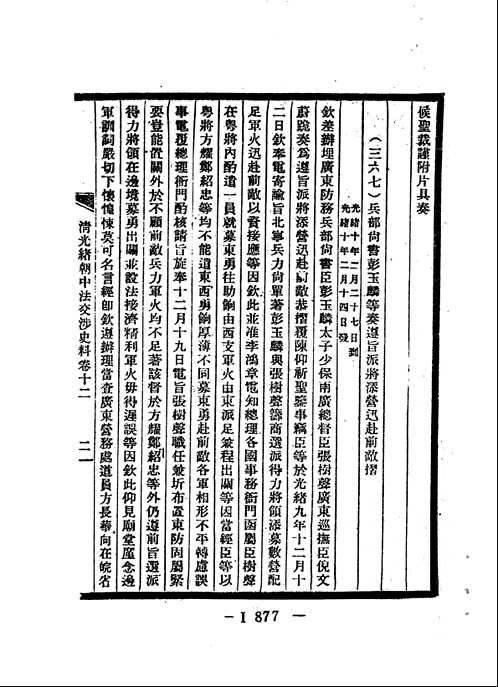 候聖裁謹附片具奏
（三六七）兵部尙書彭玉麟等奏遵旨派將添營迅赴前敵摺
光緖十年二月二十七日到
光緖十年二月十四日發
欽差辦理廣東防務兵部尙書臣彭玉麟太子少保兩廣總督臣張樹聲廣東巡撫臣倪文
蔚跪奏爲遵旨派將添營迅赴前敵恭摺覆陳仰祈聖鑒事竊臣等於光緖九年十二月十
二日欽奉電寄諭旨北寧兵力尙單著彭玉麟與張樹聲籌商選派得力將領添募數營配
足軍火迅赴前敵以資接應等因欽此並准李鴻章電知總理各國事務衙門函屬臣樹聲
在粵將內酌遣一員就募東勇往助餉由西支軍火由東派足兼程出關等因當經臣等以
粵將方耀鄭紹忠等均不能遣東西勇餉厚薄不同募東勇赴前敵各軍相形不平轉慮誤
事電覆總理衙門酌核請旨旋奉十二月十九日電旨張樹聲職任兼圻布置東防固屬緊
要豈能置關外於不顧前敵兵力軍火均不足著該督於方耀鄭紹忠等外仍遵前旨選派
得力將領在邊境募勇出關並設法接濟精利軍火毋得遲誤等因欽此仰見廟堂廑念邊
軍訓詞嚴切下懷惶悚莫可名言經卽欽遵辦理當查廣東營務處道員方長華向在皖省
清光緖朝中法交涉史料卷十二
二一
— I 877 —